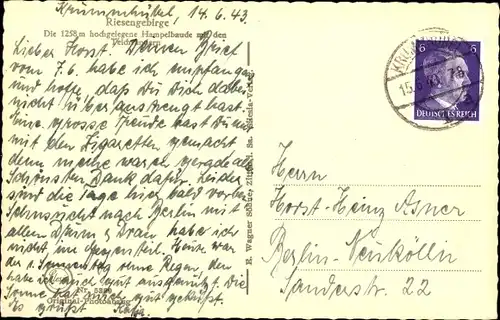 Krummhübel, 14.6.43.
Riesengebirge
Die 1258 m hochgelegene Hampelbaude mit den
Lieber Horst. Deinen Brief
vom 7.6. habe ich empfangen
und hoffe, daß Du Dich dabei
nicht überanstrengt hast.
Eine grosse Freude hast Du mir
mit den Zigaretten gemacht
denn meine waren gerade alle
Schönsten Dank dafür. Leider
sind die Tage hier bald vorbei
Sehnsucht nach Berlin mit
allem Drum u. Dran habe ich
nicht im Gegenteil. Heute war
der 1. Sonnentag ohne Regen, den
habe ich auch gut ausgenutzt. Die
Sonne hat mich gut geküßt.
Es grüßt
Nr. 5399
Original-Photographie
E. Wagner Söhne, Zittau, Sa.
KRUMMHÜBEL
15.6.43
6 6
DEUTSCHES REICH
Herrn
Horst-Heinz Asner
Berlin-Neukölln
Sanderstr. 22